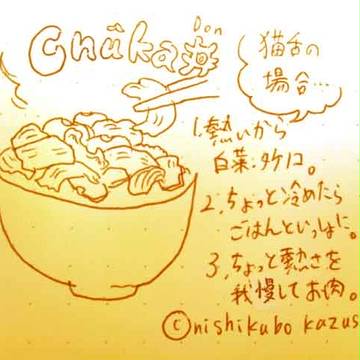 Don
Chūka丼
猫舌の
場合…
1.熱いから
白菜・タケノコ。
2.ちょっと冷めたら
ごはんといっしょに。
3.ちょっと熱さを
我慢してお肉。
©nishikubo kazus